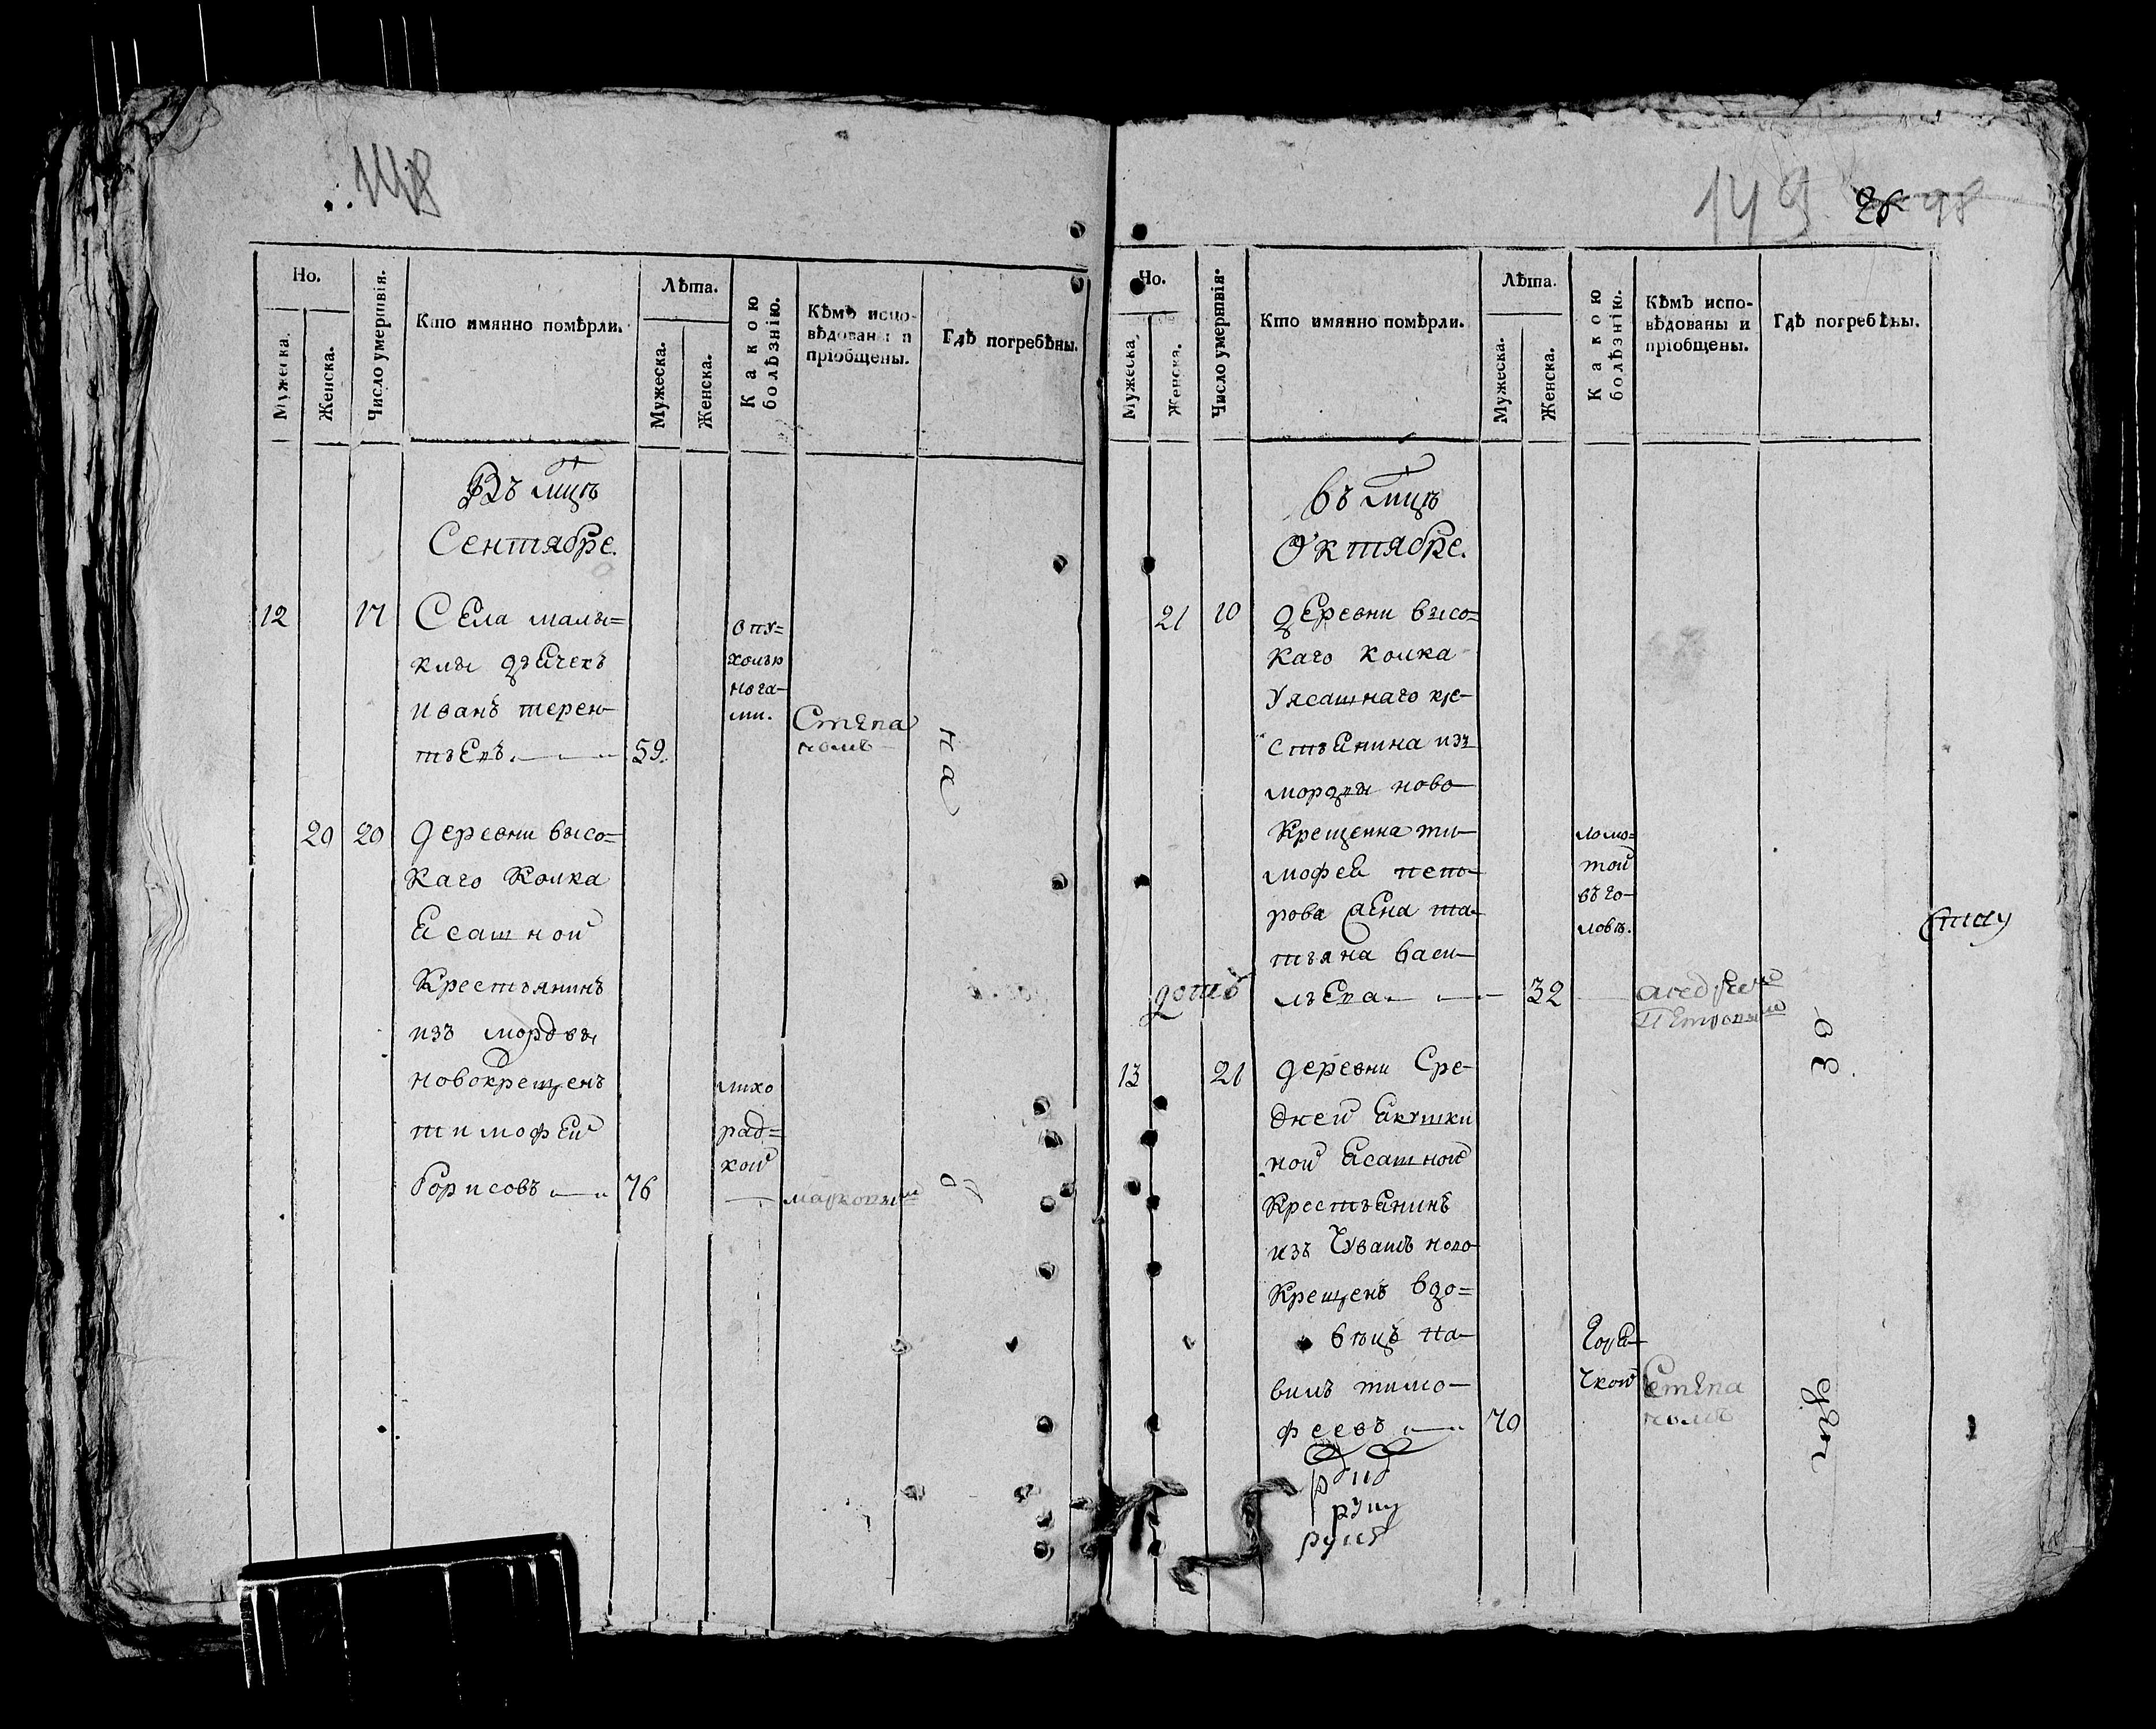 148
Но.
Мужеска.
Женска.
Число умертвія.
Кто имянно помѣрли.
Лѣта.
Мужеска.
Женска.
Какою болѣзнію.
Кѣмъ испо-
вѣдованы и
пріобщены.
Гдѣ погребѣны.
Въ мцѣ
Сентябре.
12 17 Села малы=
клы дьячекъ
иванъ терен-
тьевъ. 59.
опу=
холью
нога-
ми.
Степа
номъ
на
20 20 деревни высо=
каго колка
Ясашной
Крестьянинъ
изъ мордвы
новокрещенъ
тимофей
Борисовъ 76
лихо
рад=
кой
149 98
Но.
Мужеска.
Женска.
Число умертвія.
Кто имянно помѣрли.
Лѣта.
Мужеска.
Женска.
Какою болѣзнію.
Кѣмъ испо-
вѣдованы и
пріобщены.
Гдѣ погребѣны.
въ мцѣ
Октябре.
21 10 деревни высо=
каго колка
Уясашнаго кре-
стьянина изъ
мордвы ново-
Крещенна ти-
мофея пет-
рова жена та-
тьяна васи-
льева 32
ломо=
той
въ го-
ловѣ.
13 21 деревни Сре-
дней Якушки
ной Ясашной
Крестьянинъ
изъ Чувашъ ново
Крещенъ вдо=
вецъ па-
вилъ тимо-
феевъ 70
Горя-
чкой
Степа
номъ